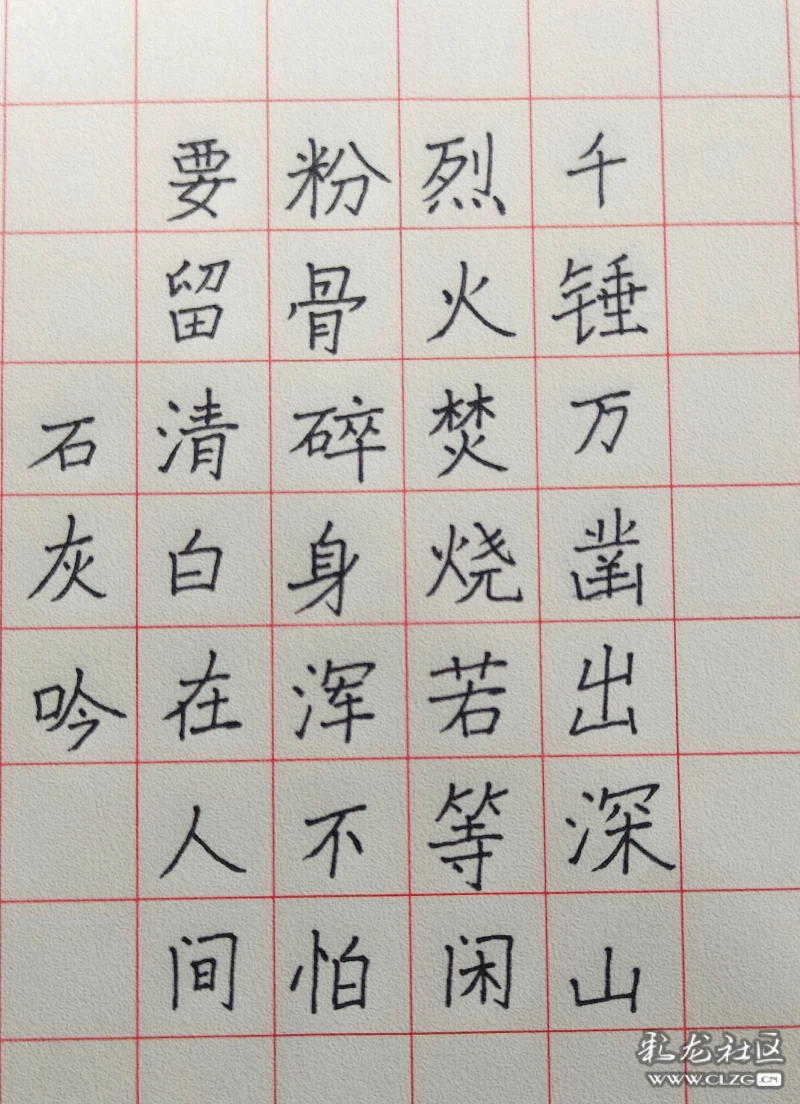 千锤万凿出深山
烈火焚烧若等闲
粉骨碎身浑不怕
要留清白在人间
石灰吟
彩龙社区
www.CLZG.CN